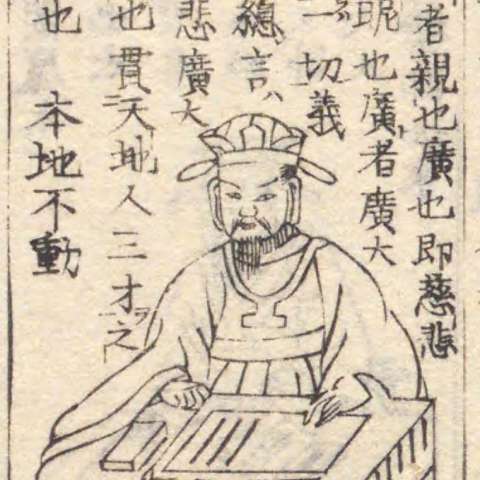 者親也廣也即慈悲
昵也廣者廣大
一切義
總言
悲廣大
也貫天地人三才之
也 本地不動